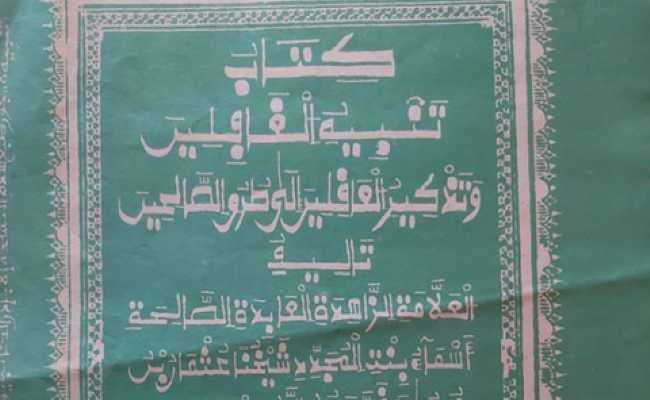 كِتَاب
تَنْبِيه الْغَافِلِين
وَتَذْكِير الْعَاقِلِين إلى طرق الصَّالِحِين
تأليف
الْعَلَّامَة الزَّاهِدَة الْعَابِدَة الصَّالِحَة
أَسْمَاء بِنْت الْمُجَدِّد شَيْخنَا عُثْمَان بْن